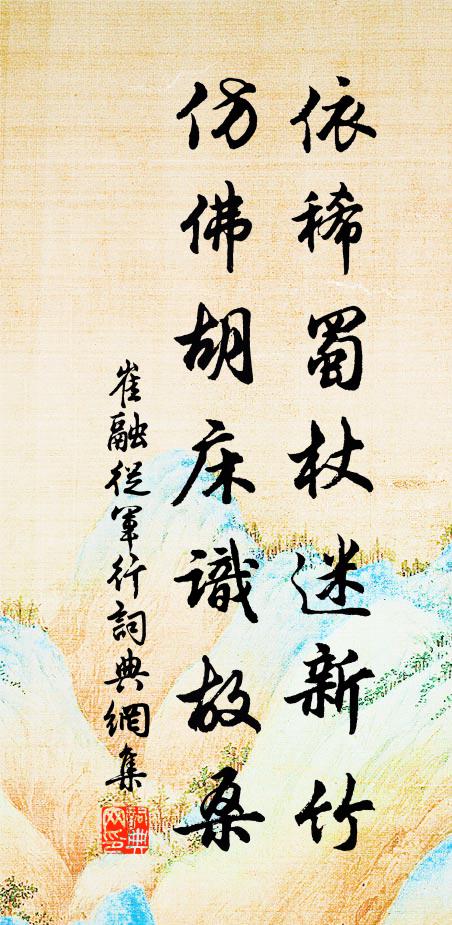 依稀蜀杖迷新竹
仿佛胡床識故桑
崔融從軍行詞典網集
詞典